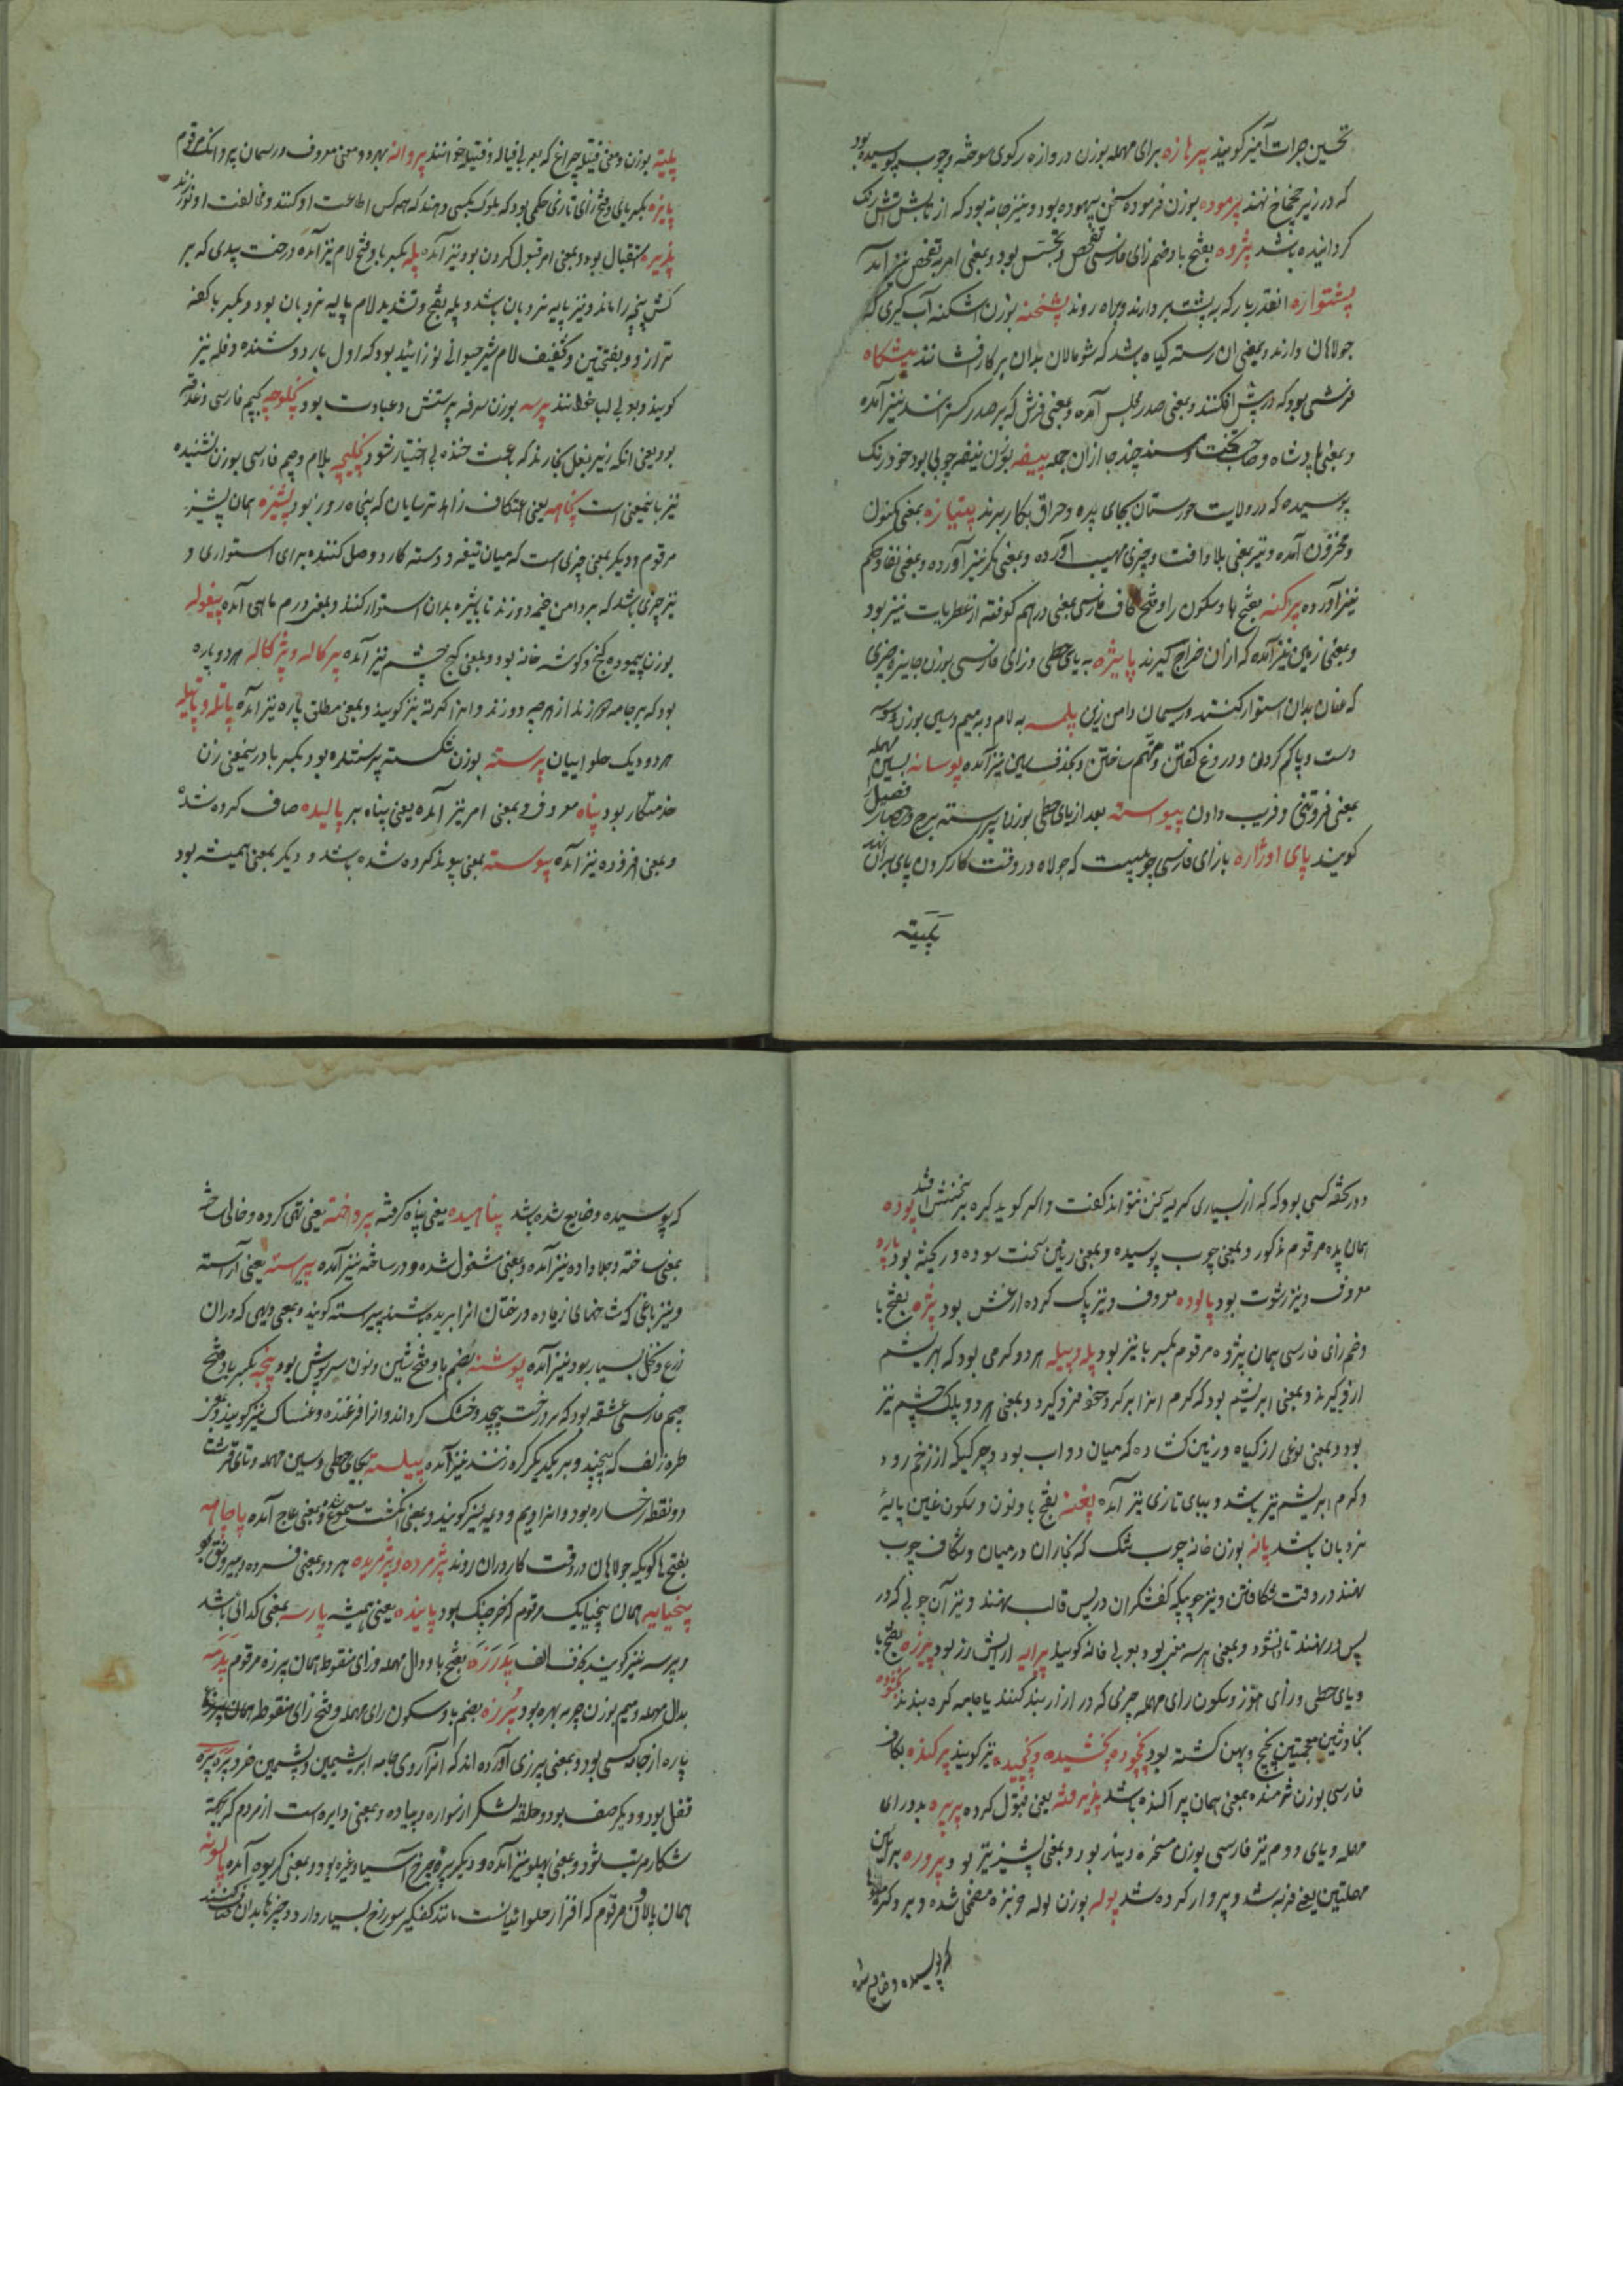 تحسین جرات آمیز گویند پرهازه برای مهمله بوزن دروازه رکوی سوخته و چوب پوسیده بود
که در زیر چخماخ نهند پرموده بوزن فرموده سخن بیهوده بود و نیز جامه بود که از تابش آتش رنگ
گردانیده باشد پژوه بفتح با و ضم زای فارسی تفحص و تجسس بود و بمعنی امر به تفحص نیز آمده
پشتواره انقدر بار که به پشت بردارند و براه روند پشنجه بوزن اشکنه آب گیری که
جولاهان دارند و بمعنی ان رسته گیاه باشد که شومالان بدان بر کار افشانند پیشگاه
فرشی بود که در پیش افکنند و بمعنی صدر مجلس آمده و بمعنی فرش که بر صدر گسترانند نیز آمده
و بمعنی پادشاه و صاحب تخت و مسند چند جا از آن جمله پیفه بوزن نیفه چوبی بود خودرنگ
پوسیده که در ولایت خورستان بجای پده و حراق بکار برند پتیاره بمعنی مکنون
و مخزون آمده و نیز بمعنی بلا و افت و چیزی مهیب آورده و بمعنی مکر نیز آورده و بمعنی نفاذ حکم
نیز آورده پرکنه بفتح با و سکون را و فتح کاف فارسی بمعنی درهم کوفته از عطریات نیز بود
و بمعنی زمین نیز آمده که از ان خراج گیرند پاییژه به یای حطی و زای فارسی بوزن جاییزه چیزی
که عنان بدان استوار کنند و ریسمان دامن زین پلمسه به لام و به میم و سین بوزن وسوسه
دست و پا گم کردن و دروغ گفتن و متهم ساختن و بحذف سین نیز آمده پوسانه بسین مهمله
بمعنی فروتنی و فریب دادن پیوسته بعد از یای حطی بوزن پرسته برج و حصار فصیل
گویند پای اوژاره بازای فارسی چوبیست که جولاه در وقت کار کردن پای بر ان نهد
پلیته
پلیته بوزن و معنی فتیله چراغ که بعربی فیاله و فتیله خوانند پروانه بهر دو معنی معروف و ریسمان پروانک مرقوم
پایزه بکسر یای و فتح زای تازی حکمی بود که ملوک بکسی دهند که همه کس اطاعت او کنند و مخالفت او نورزند
پذیره استقبال بود و بمعنی امر قبول کردن بود نیز آمده پله بکسر با و فتح لام نیز آمده درخت بیدی که بر
کش پنجه را ماند و نیز پایه نردبان باشد و پله بفتح و تشدید لام پایه نردبان بود و بکسر با کفه
ترازو و بفتحتین و تخفیف لام شیر حیوانی نوزائیده بود که اول بار دوشند و فله نیز
گویند و بعربی لبا خوانند پرسه بوزن سرفه پرستش و عبادت بود پکلوچه بجیم فارسی دغدغه
بود یعنی انکه زیر بغل بخارند که باعث خنده بی اختیار شود پکلیچه بلام و جیم فارسی بوزن نشنیده
نیز باینمعنی است پنجاهه یعنی اعتکاف زاهد ترسایان که پنجاه روز بود پشیزه همان پشیز
مرقوم و دیگر بمعنی چیزی است که میان تیغه و دسته کارد وصل کننده برای استواری و
نیز چیزی باشد که بر دامن خیمه دوزند تا پشیزه بدان استوار کنند و بمعنی درم ماهی آمده پیغوله
بوزن پیموده کنج و گوشه خانه بود و بمعنی کنج چشم نیز آمده پرکاله و پژکاله هردو پاره
بود که بر جامه درزند از هر چه دوزند و انرا کرته نیز گویند و بمعنی مطلق پاره نیز آمده پاتله و پاتیله
هردو دیک حلواییان پرسته بوزن شکسته پرستنده بود و بکسر با در ینمعنی زن
خدمتکار بود پناه معروف و بمعنی امر نیز آمده یعنی پناه بر پالیده صاف کرده شده
و بمعنی افزوده نیز آمده پیوسته بمعنی پیوند کرده شده باشد و دیگر بمعنی همیشه بود
و در کفه کسی بود که از بسیاری گریه سخن نتواند گفت و اگر گوید گره بر سخنش افتد پوده
همان پده مرقوم مذکور و بمعنی چوب پوسیده و بمعنی زمین سخت سوده و ریخته بود پاره
معروف و نیز رشوت بود پالوده معروف و نیز پاک کرده از غش بود پژه بفتح با
و ضم زای فارسی همان پژوه مرقوم بکسر با نیز بود پله و پیله هردو کرمی بود که ابریشم
ازو گیرند و بمعنی ابریشم بود که کرم انرا بر گرد خود فرو گیرد و بمعنی هردو پلک چشم نیز
بود و بمعنی نوعی از گیاه و زمین گشاده که میان دو آب بود و چرکیکه از زخم رود
و کرم ابریشم نیز باشد و ببای تازی نیز آمده پغنه بفتح با و نون و سکون غین پایه
نردبان باشد پانه بوزن خانه چوب تنک که نجاران در میان شکاف چوب
نهند در وقت شکافتن و نیز چوبیکه کفشگران در پس قالب نهند و نیز آن چوبی که در
پس در نهند تا نشود و بمعنی هرسه مغز بود بعربی فانه گویند پرایه ارایش رز بود پیرزه بفتح با
و یای حطی و زای هوّز و سکون رای مهمله چیزی که در ازار بند کنند یا جامه گره بندند پخنوده
بخا و شین معجمتین پخج و پهن گشته بود پخچوده و پخشیده و پخچیده نیز گویند پرکنده بکاف
فارسی بوزن شرمنده بمعنی همان پراکنده باشد پذیرفته یعنی قبول کرده پریره بدو رای
مهمله و یای دوم نیز فارسی بوزن مسخره دینار بود و بمعنی پشیز نیز بود پروره برائین
مهملتین یعنی فربه شد و پروار کرده شد پوله بوزن لوله خربزه مضمحل شده و بر و کنده
که پوسیده و ضایع شده
که پوسیده و ضایع شده باشد پناهیده یعنی پناه گرفته پرداخته یعنی تهی کرده و خالی ساخته
بمعنی ساخته و جلا داده نیز آمده و بمعنی مشغول شده و در ساخته نیز آمده پیراسته یعنی آراسته
و نیز باغی که شاخهای زیاده درختان انرا بریده باشند پیراسته گویند و بمعنی دیهی که دران
زرع و نخل بسیار بود نیز آمده پوشنه بضم با و فتح شین و نون سرپوش بود پیچه بکسر با و فتح
جیم فارسی عشقه بود که بر درخت پیچد و خشک گرداند و انرا فرغنده و عنساک نیز گویند و بمعنی
طره زلف که پیچند و بر یکدیگر گره زنند نیز آمده پیلسته بجای حطی و سین مهمله و تای قرشت
دو نقطه رخساره بود و انرا دیم و دیمه نیز گویند و بمعنی انگشت مسموع و بمعنی عاج آمده پاچاهه
بفتح ها گویکه جولاهان در وقت کار دران روند پژمرده و پژمریده هر دو بمعنی فسرده و بیرونق بود
پنجپایه همان پنجپایک مرقوم که خرچنک بود پاینده یعنی همیشه پارسه بمعنی گدائی باشد
و پرسه نیز گویند بحذف الف پَدَرزَه بفتح با و دال مهمله و زای منقوطه همان پیرزه مرقوم پدمه
بدال مهمله و میم بوزن چرمه بهره بود پُرزه بضم با و سکون رای مهمله و فتح زای منقوطه همان
پاره از جامه کسی بود و بمعنی پرزی آورده اند که از آن روی جامه ابریشمین و پشمین خرد پره پره
قفل بود و دیگر صف بود و حلقه لشکر از سواره و پیاده و بمعنی دایره است از مردم که بجهة
شکار مرتب شود و بمعنی پهلو نیز آمده و دیگر پره چرخ آسیا و غیره بود و بمعنی گریوه آمده پالونه
همان پالاون مرقوم که افزار حلوائیانست مانند کفگیر سوراخ بسیار دارد و چیزها بدان صاف کنند